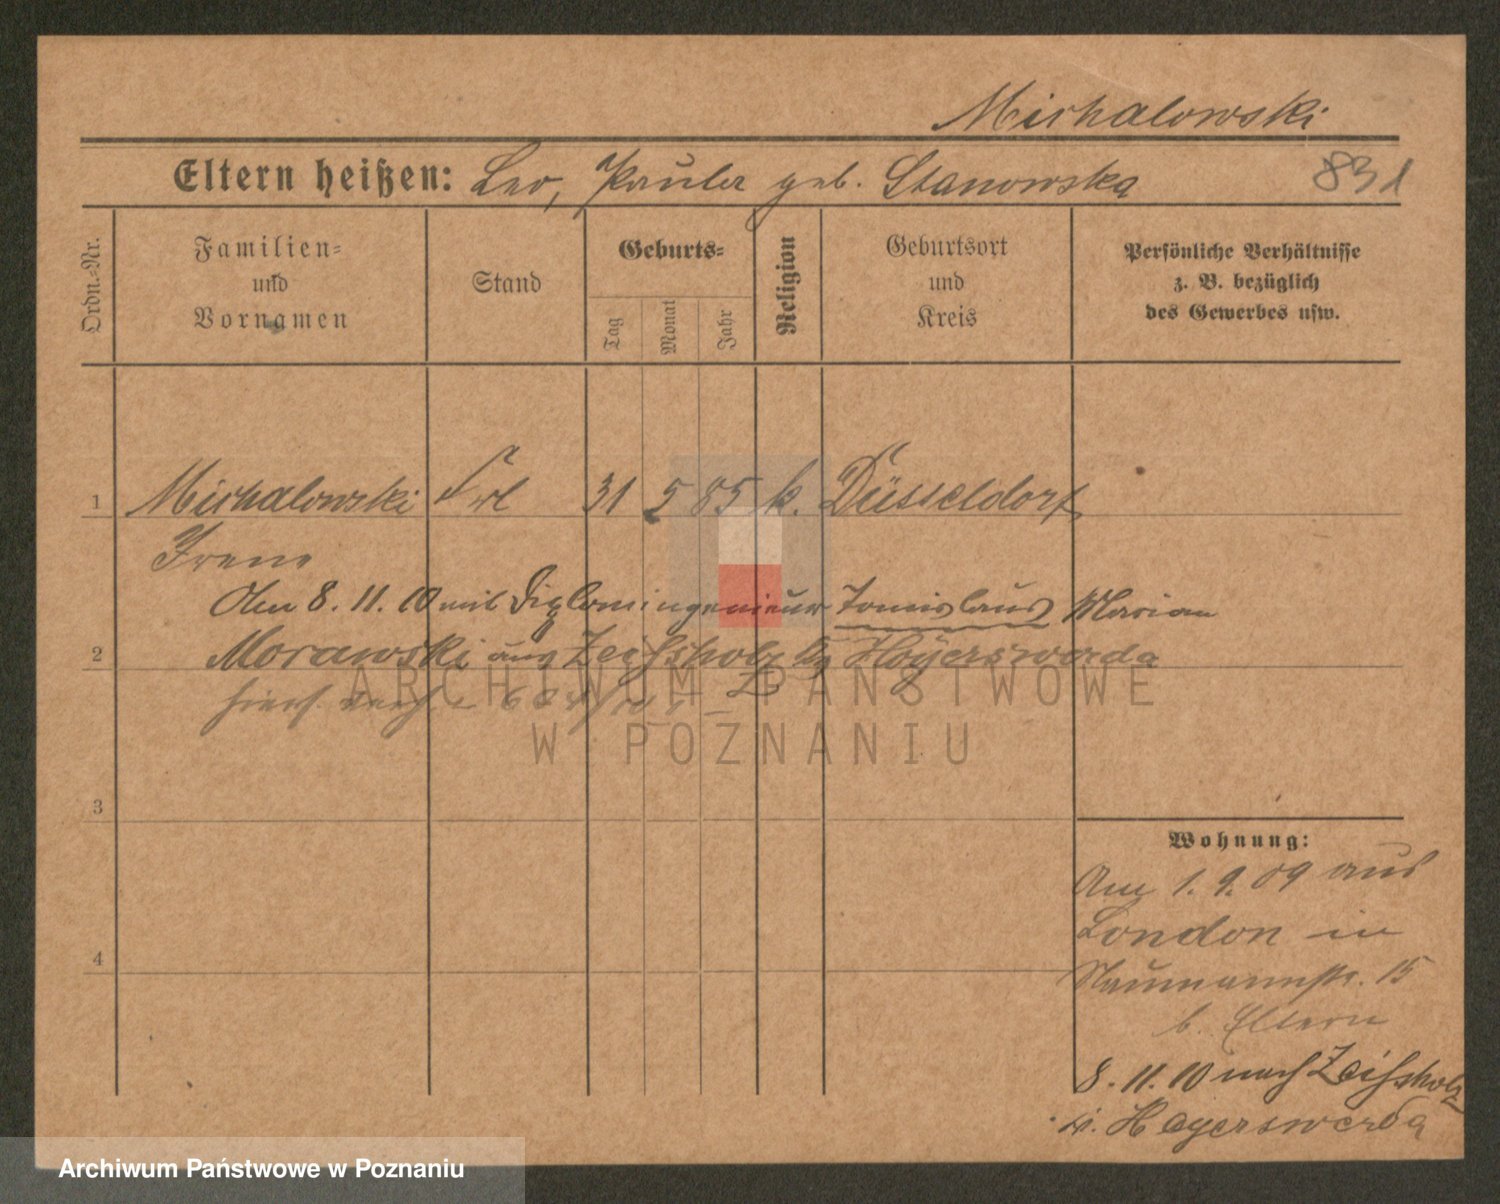 Michalowski
Eltern heißen: Leo, Paula geb. Stanowska
831
Ordn.-Nr.
Familien-
und
Vornamen
Stand
Geburts-
Tag
Monat
Jahr
Religion
Geburtsort
und
Kreis
Persönliche Verhältnisse
z. B. bezüglich
des Gewerbes usw.
1 Michalowski Frl 31 5 85 k. Düsseldorf
Irene
Am 8. 11. 10 mit Diplomingenieur Tomislaus Marian
2 Morawski aus Zeißholz by Hoyerswerda
ARCHIWUM PAŃSTWOWE
W POZNANIU
3
4
Wohnung:
Am 1. 9. 09 aus
London in
Naumannstr. 15
b. Eltern
8. 11. 10 nach Zeißholz
Hoyerswerda
Archiwum Państwowe w Poznaniu